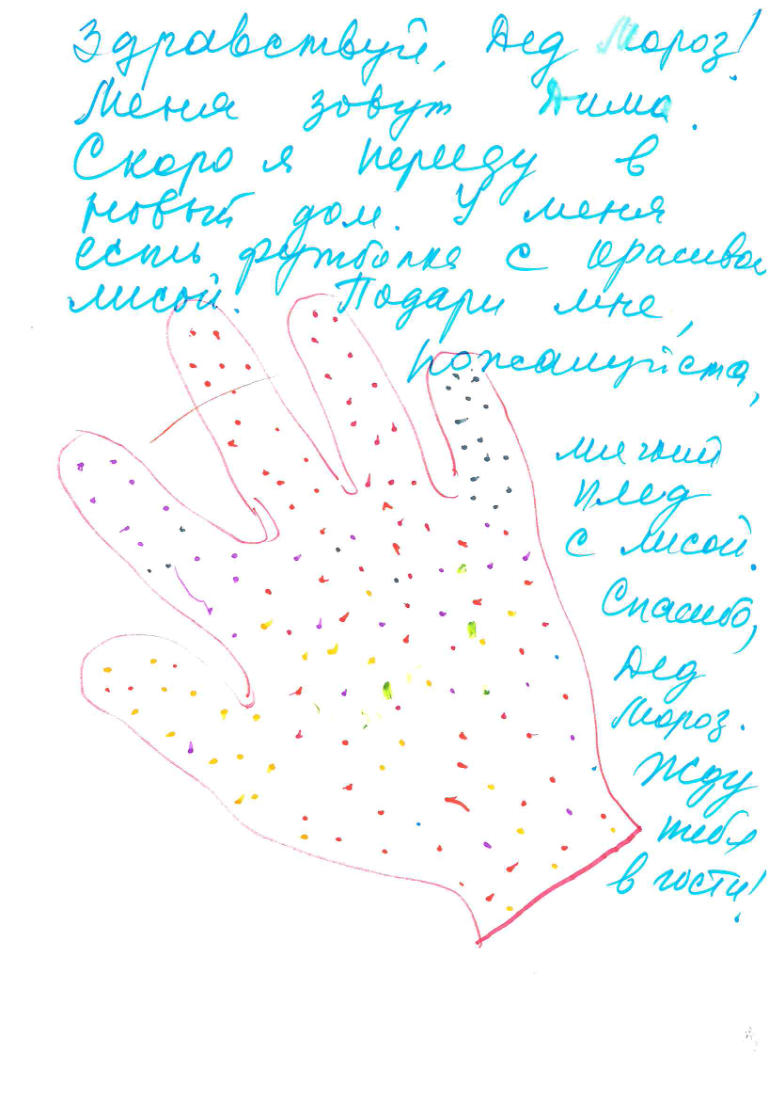 Здравствуй, Дед Мороз!
Меня зовут Дима.
Скоро я перееду в
новый дом. У меня
есть футболка с красивой
лисой. Подари мне,
пожалуйста,
мягкий
плед
с лисой.
Спасибо,
Дед
Мороз.
Жду
тебя
в гости!